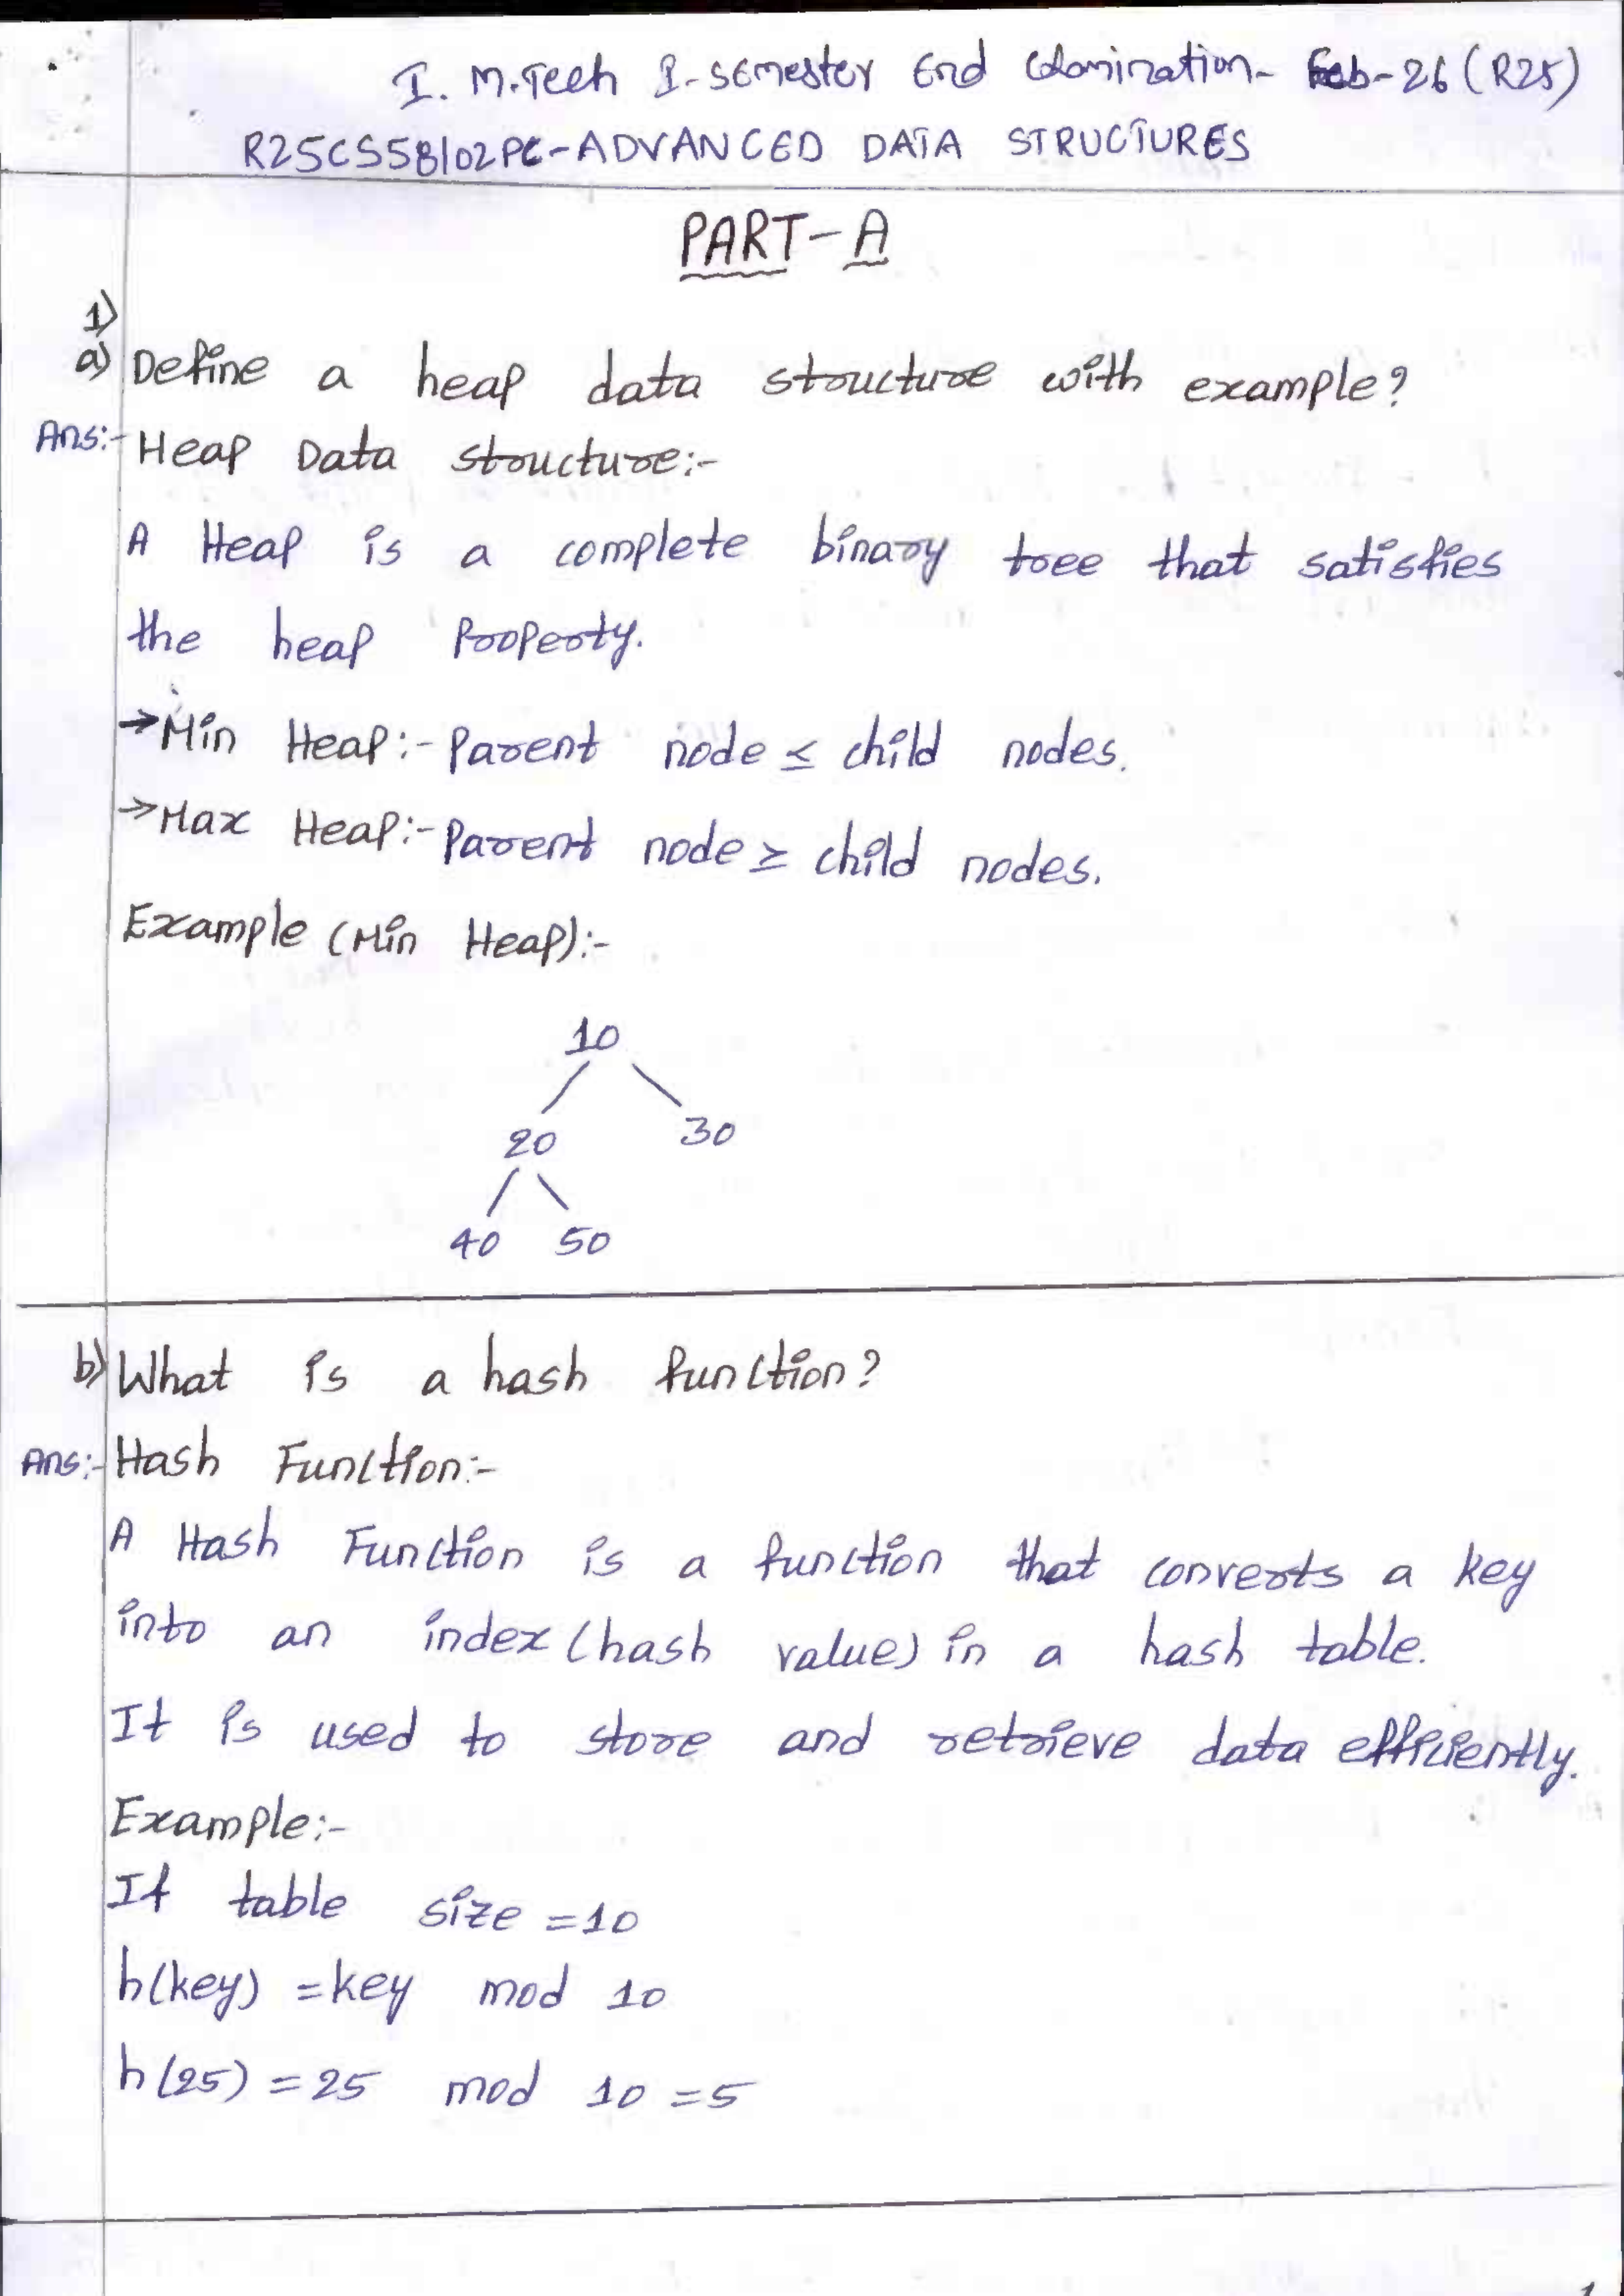 I. M.Tech I-Semester End Examination- Feb-26 (R25)
R25CS58102PC-ADVANCED DATA STRUCTURES
PART-A
1)
a) Define a heap data structure with example?
Ans:- Heap Data structure:-
A Heap is a complete binary tree that satisfies
the heap Property.
→Min Heap:- Parent node ≤ child nodes.
→Max Heap:- Parent node ≥ child nodes.
Example (Min Heap):-
10
20 30
40 50
b) What is a hash function?
Ans:- Hash Function:-
A Hash Function is a function that converts a key
into an index (hash value) in a hash table.
It is used to store and retrieve data efficiently.
Example:-
If table size =10
h(key) =key mod 10
h(25) =25 mod 10 =5